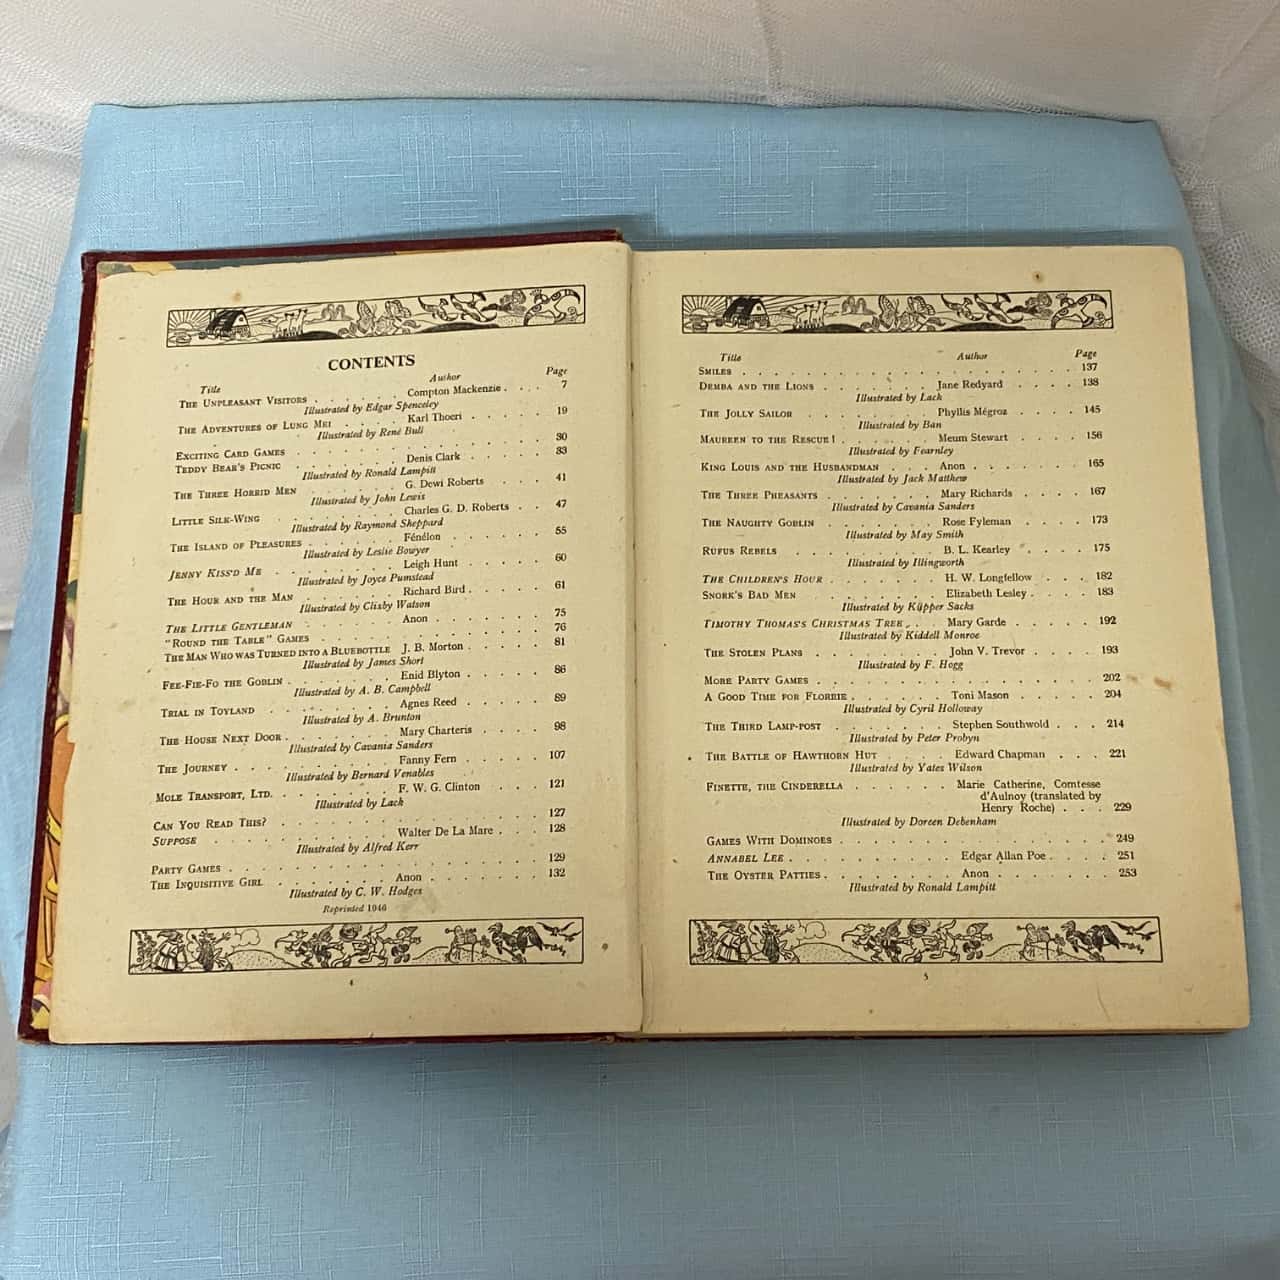 CONTENTS
Title Author Page
The Unpleasant Visitors . . . . . . Compton Mackenzie . . . 7
Illustrated by Edgar Spenceley
The Adventures of Lung Mei . . . . Karl Thoeri . . . . . 19
Illustrated by René Bull
Exciting Card Games . . . . . . . . . . . . . 30
Teddy Bear's Picnic . . . . . . Denis Clark . . . . . 33
Illustrated by Ronald Lampitt
The Three Horrid Men . . . . . . G. Dewi Roberts . . . . 41
Illustrated by John Lewis
Little Silk-Wing . . . . . . . Charles G. D. Roberts . . 47
Illustrated by Raymond Sheppard
The Island of Pleasures . . . . . . Fénélon . . . . . . 55
Illustrated by Leslie Bowyer
Jenny Kiss'd Me . . . . . . . . Leigh Hunt . . . . . 60
Illustrated by Joyce Pumstead
The Hour and the Man . . . . . . Richard Bird . . . . . 61
Illustrated by Clixby Watson
The Little Gentleman . . . . . . Anon . . . . . . 75
"Round the Table" Games . . . . . . . . . . . . 76
The Man Who was Turned into a Bluebottle J. B. Morton . . . . . 81
Illustrated by James Short
Fee-Fie-Fo the Goblin . . . . . . Enid Blyton . . . . . 86
Illustrated by A. B. Campbell
Trial in Toyland . . . . . . . Agnes Reed . . . . . 89
Illustrated by A. Brunton
The House Next Door . . . . . . Mary Charteris . . . . 98
Illustrated by Cavania Sanders
The Journey . . . . . . . . . Fanny Fern . . . . . 107
Illustrated by Bernard Venables
Mole Transport, Ltd. . . . . . . . F. W. G. Clinton . . . . 121
Illustrated by Lack
Can You Read This? . . . . . . . . . . . . . 127
Suppose . . . . . . . . . Walter De La Mare . . . 128
Illustrated by Alfred Kerr
Party Games . . . . . . . . . . . . . . . 129
The Inquisitive Girl . . . . . . . Anon . . . . . . 132
Illustrated by C. W. Hodges
Reprinted 1946
4
Title Author Page
Smiles . . . . . . . . . . . . . . . . . 137
Demba and the Lions . . . . . . . Jane Redyard . . . . 138
Illustrated by Lack
The Jolly Sailor . . . . . . . . Phyllis Mégroz . . . . 145
Illustrated by Ban
Maureen to the Rescue! . . . . . . Meum Stewart . . . . 156
Illustrated by Fearnley
King Louis and the Husbandman . . . Anon . . . . . . . 165
Illustrated by Jack Matthew
The Three Pheasants . . . . . . . Mary Richards . . . . 167
Illustrated by Cavania Sanders
The Naughty Goblin . . . . . . . Rose Fyleman . . . . 173
Illustrated by May Smith
Rufus Rebels . . . . . . . . . B. L. Kearley . . . . 175
Illustrated by Illingworth
The Children's Hour . . . . . . . H. W. Longfellow . . . 182
Snork's Bad Men . . . . . . . . Elizabeth Lesley . . . . 183
Illustrated by Küpper Sacks
Timothy Thomas's Christmas Tree . . . Mary Garde . . . . . 192
Illustrated by Kiddell Monroe
The Stolen Plans . . . . . . . . John V. Trevor . . . . 193
Illustrated by F. Hogg
More Party Games . . . . . . . . . . . . . . 202
A Good Time for Florrie . . . . . . Toni Mason . . . . . 204
Illustrated by Cyril Holloway
The Third Lamp-post . . . . . . . Stephen Southwold . . . 214
Illustrated by Peter Probyn
The Battle of Hawthorn Hut . . . . Edward Chapman . . . 221
Illustrated by Yates Wilson
Finette, the Cinderella . . . . . . Marie Catherine, Comtesse
d'Aulnoy (translated by
Henry Roche) . . . 229
Illustrated by Doreen Debenham
Games With Dominoes . . . . . . . . . . . . . 249
Annabel Lee . . . . . . . . . Edgar Allan Poe . . . . 251
The Oyster Patties . . . . . . . . Anon . . . . . . 253
Illustrated by Ronald Lampitt
5